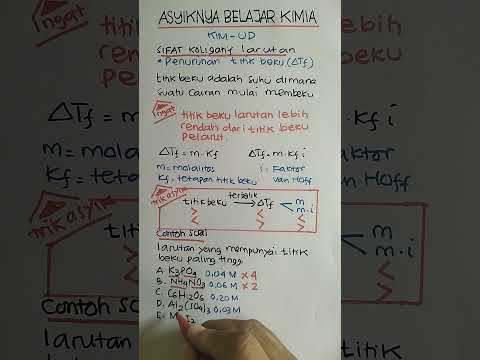 ASYIKNYA BELAJAR KIMIA
KIM-UD
SIFAT KOLIGATIF larutan
* Penurunan titik beku (ΔTf)
titik beku adalah suhu dimana
suatu cairan mulai membeku
ingat
titik beku larutan lebih
rendah dari titik beku
pelarut.
ΔTf = m. Kf ΔTf = m. Kf. i
m = molalitas i = Faktor
Kf = tetapan titik beku Van Hoff
trik asyik
titik beku terbalik → ΔTf < m
m.i
> < <
< > >
Contoh soal
larutan yang mempunyai titik
beku paling tinggi
A. K3PO4 0,04 M x 4
B. NH4NO3 0,06 M x 2
C. C6H12O6 0,20 M
D. Al2(SO4)3 0,03 M